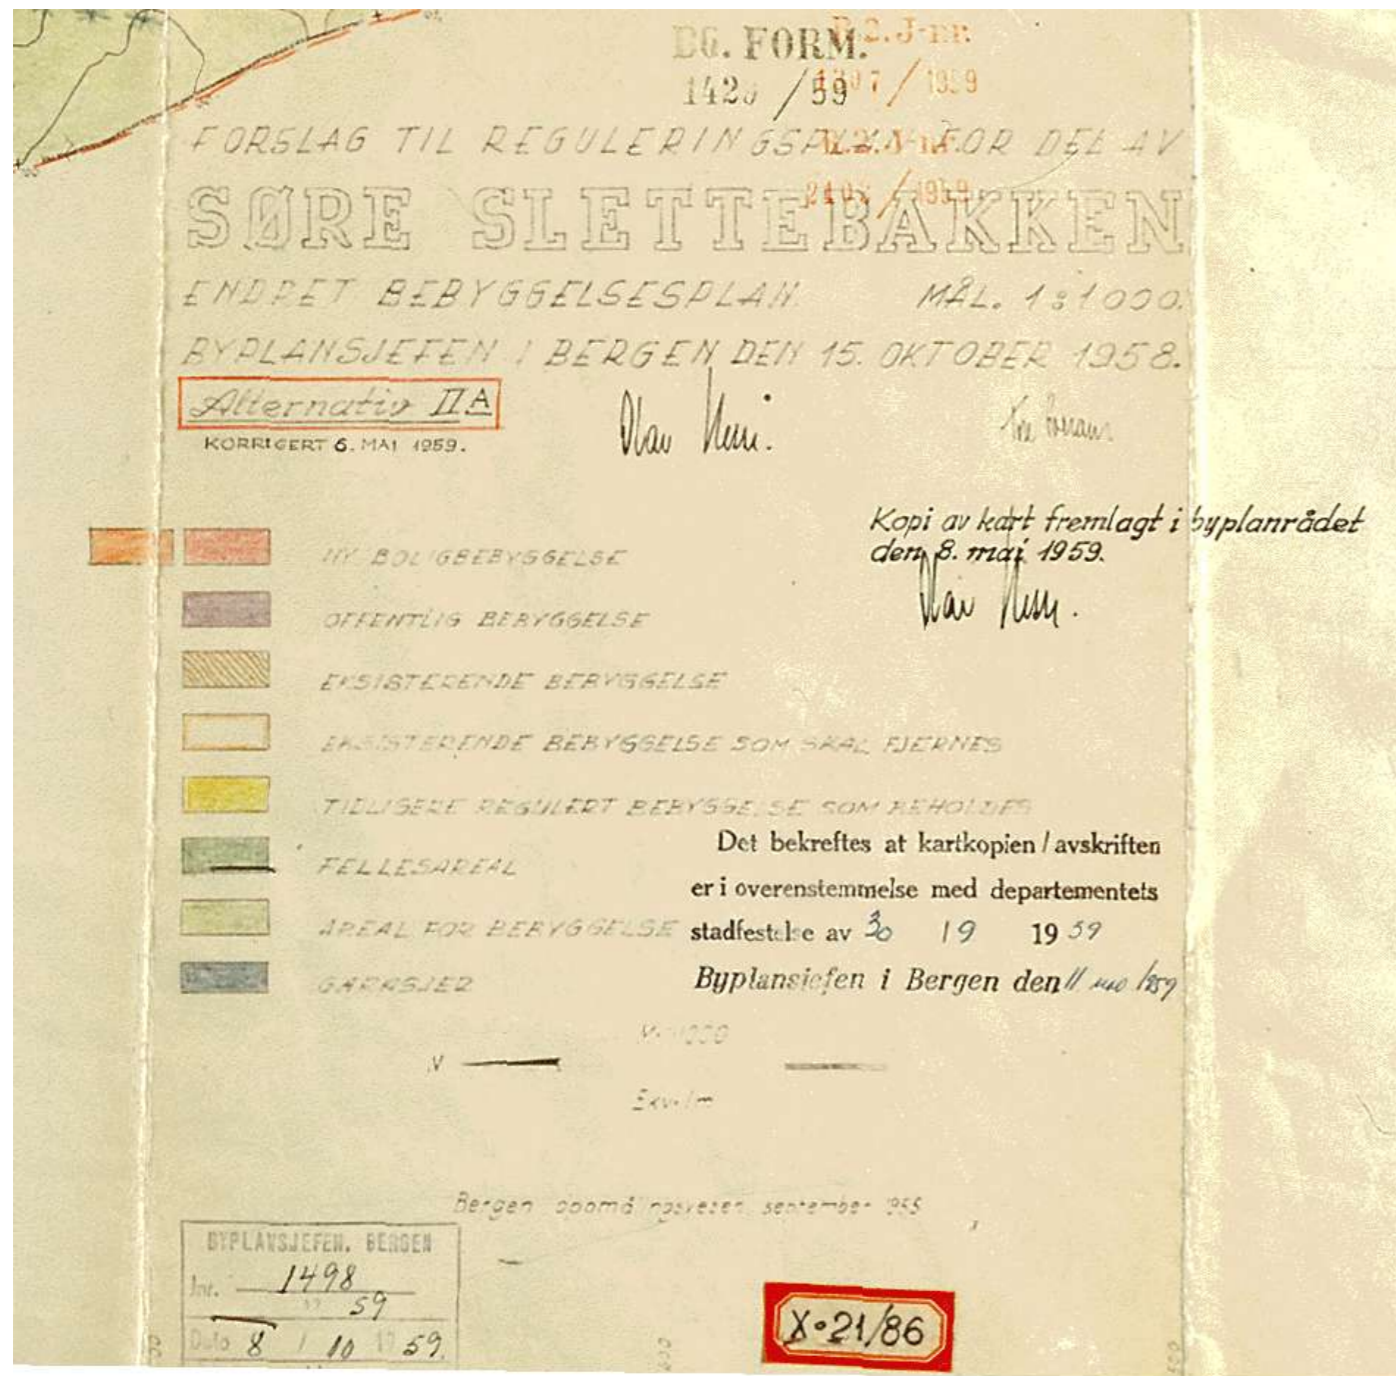 BG. FORM.
B.2.J-nr.
142 /59
/ 1959
FORSLAG TIL REGULERINGSPLAN FOR DEL AV
B.2.J-nr.
/ 1959
SØRE SLETTEBAKKEN
ENDRET BEBYGGELSESPLAN. MÅL. 1:1000.
BYPLANSJEFEN I BERGEN DEN 15. OKTOBER 1958.
Alternativ II A
KORRIGERT 6. MAI 1959.
Kopi av kart fremlagt i byplanrådet
den 8. mai 1959.
NY BOLIGBEBYGGELSE
OFFENTLIG BEBYGGELSE
EKSISTERENDE BEBYGGELSE
EKSISTERENDE BEBYGGELSE SOM SKAL FJERNES
TIDLIGERE REGULERT BEBYGGELSE SOM BEHOLDES
FELLESAREAL
AREAL FOR BEBYGGELSE
GARASJER
Det bekreftes at kartkopien/avskriften
er i overenstemmelse med departementets
stadfestelse av 30 19 1959
Byplansjefen i Bergen den 11
N
Ekv. 1m
Bergen oppmålingsvesen september 1955
BYPLANSJEFEN, BERGEN
Jnr. 1498
59
Dato 8 / 10 1959.
X•21/86